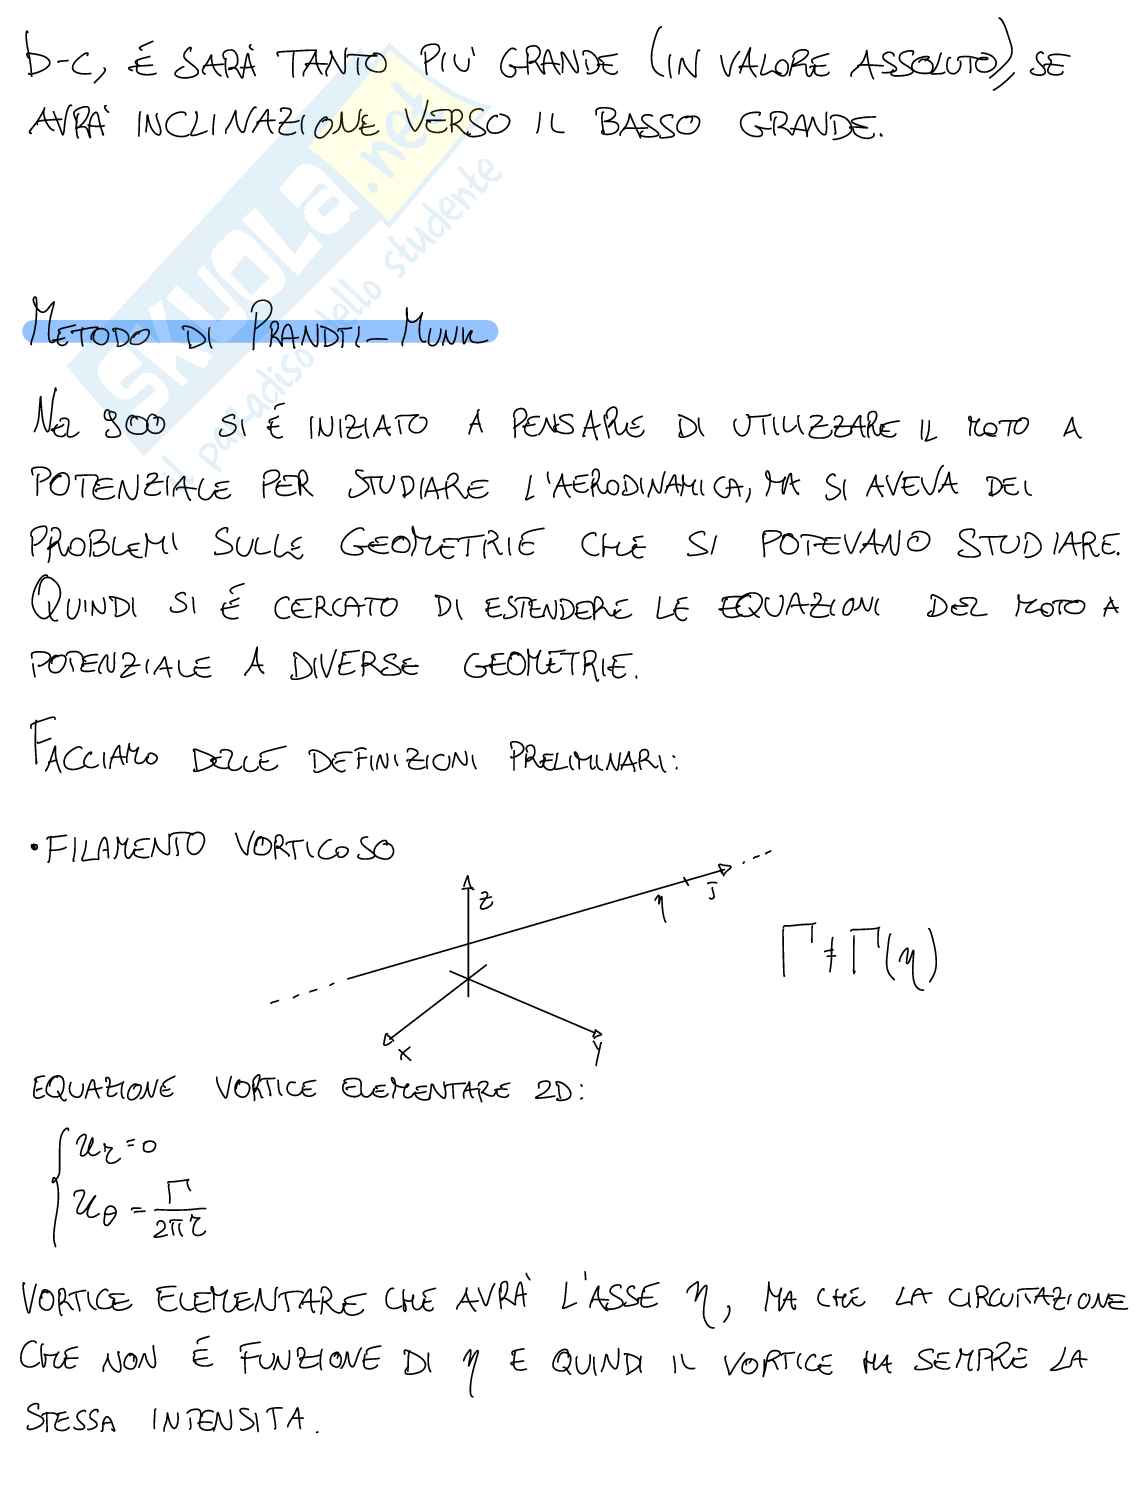 b-c, É SARÀ TANTO PIU' GRANDE (IN VALORE ASSOLUTO), SE
AVRA' INCLINAZIONE VERSO IL BASSO GRANDE.
SKUOLA.net
il paradiso dello studente
METODO DI PRANDTL-MUNK
NEL 900 SI É INIZIATO A PENSARE DI UTILIZZARE IL MOTO A
POTENZIALE PER STUDIARE L'AERODINAMICA, MA SI AVEVA DEI
PROBLEMI SULLE GEOMETRIE CHE SI POTEVANO STUDIARE.
QUINDI SI É CERCATO DI ESTENDERE LE EQUAZIONI DEL MOTO A
POTENZIALE A DIVERSE GEOMETRIE.
FACCIAMO DELLE DEFINIZIONI PRELIMINARI:
• FILAMENTO VORTICOSO
z
η
x
y
Γ ≠ Γ(η)
EQUAZIONE VORTICE ELEMENTARE 2D:
u_r = 0
u_θ = Γ / 2πr
VORTICE ELEMENTARE CHE AVRA' L'ASSE η, MA CHE LA CIRCUITAZIONE
CHE NON É FUNZIONE DI η E QUINDI IL VORTICE HA SEMPRE LA
STESSA INTENSITA.